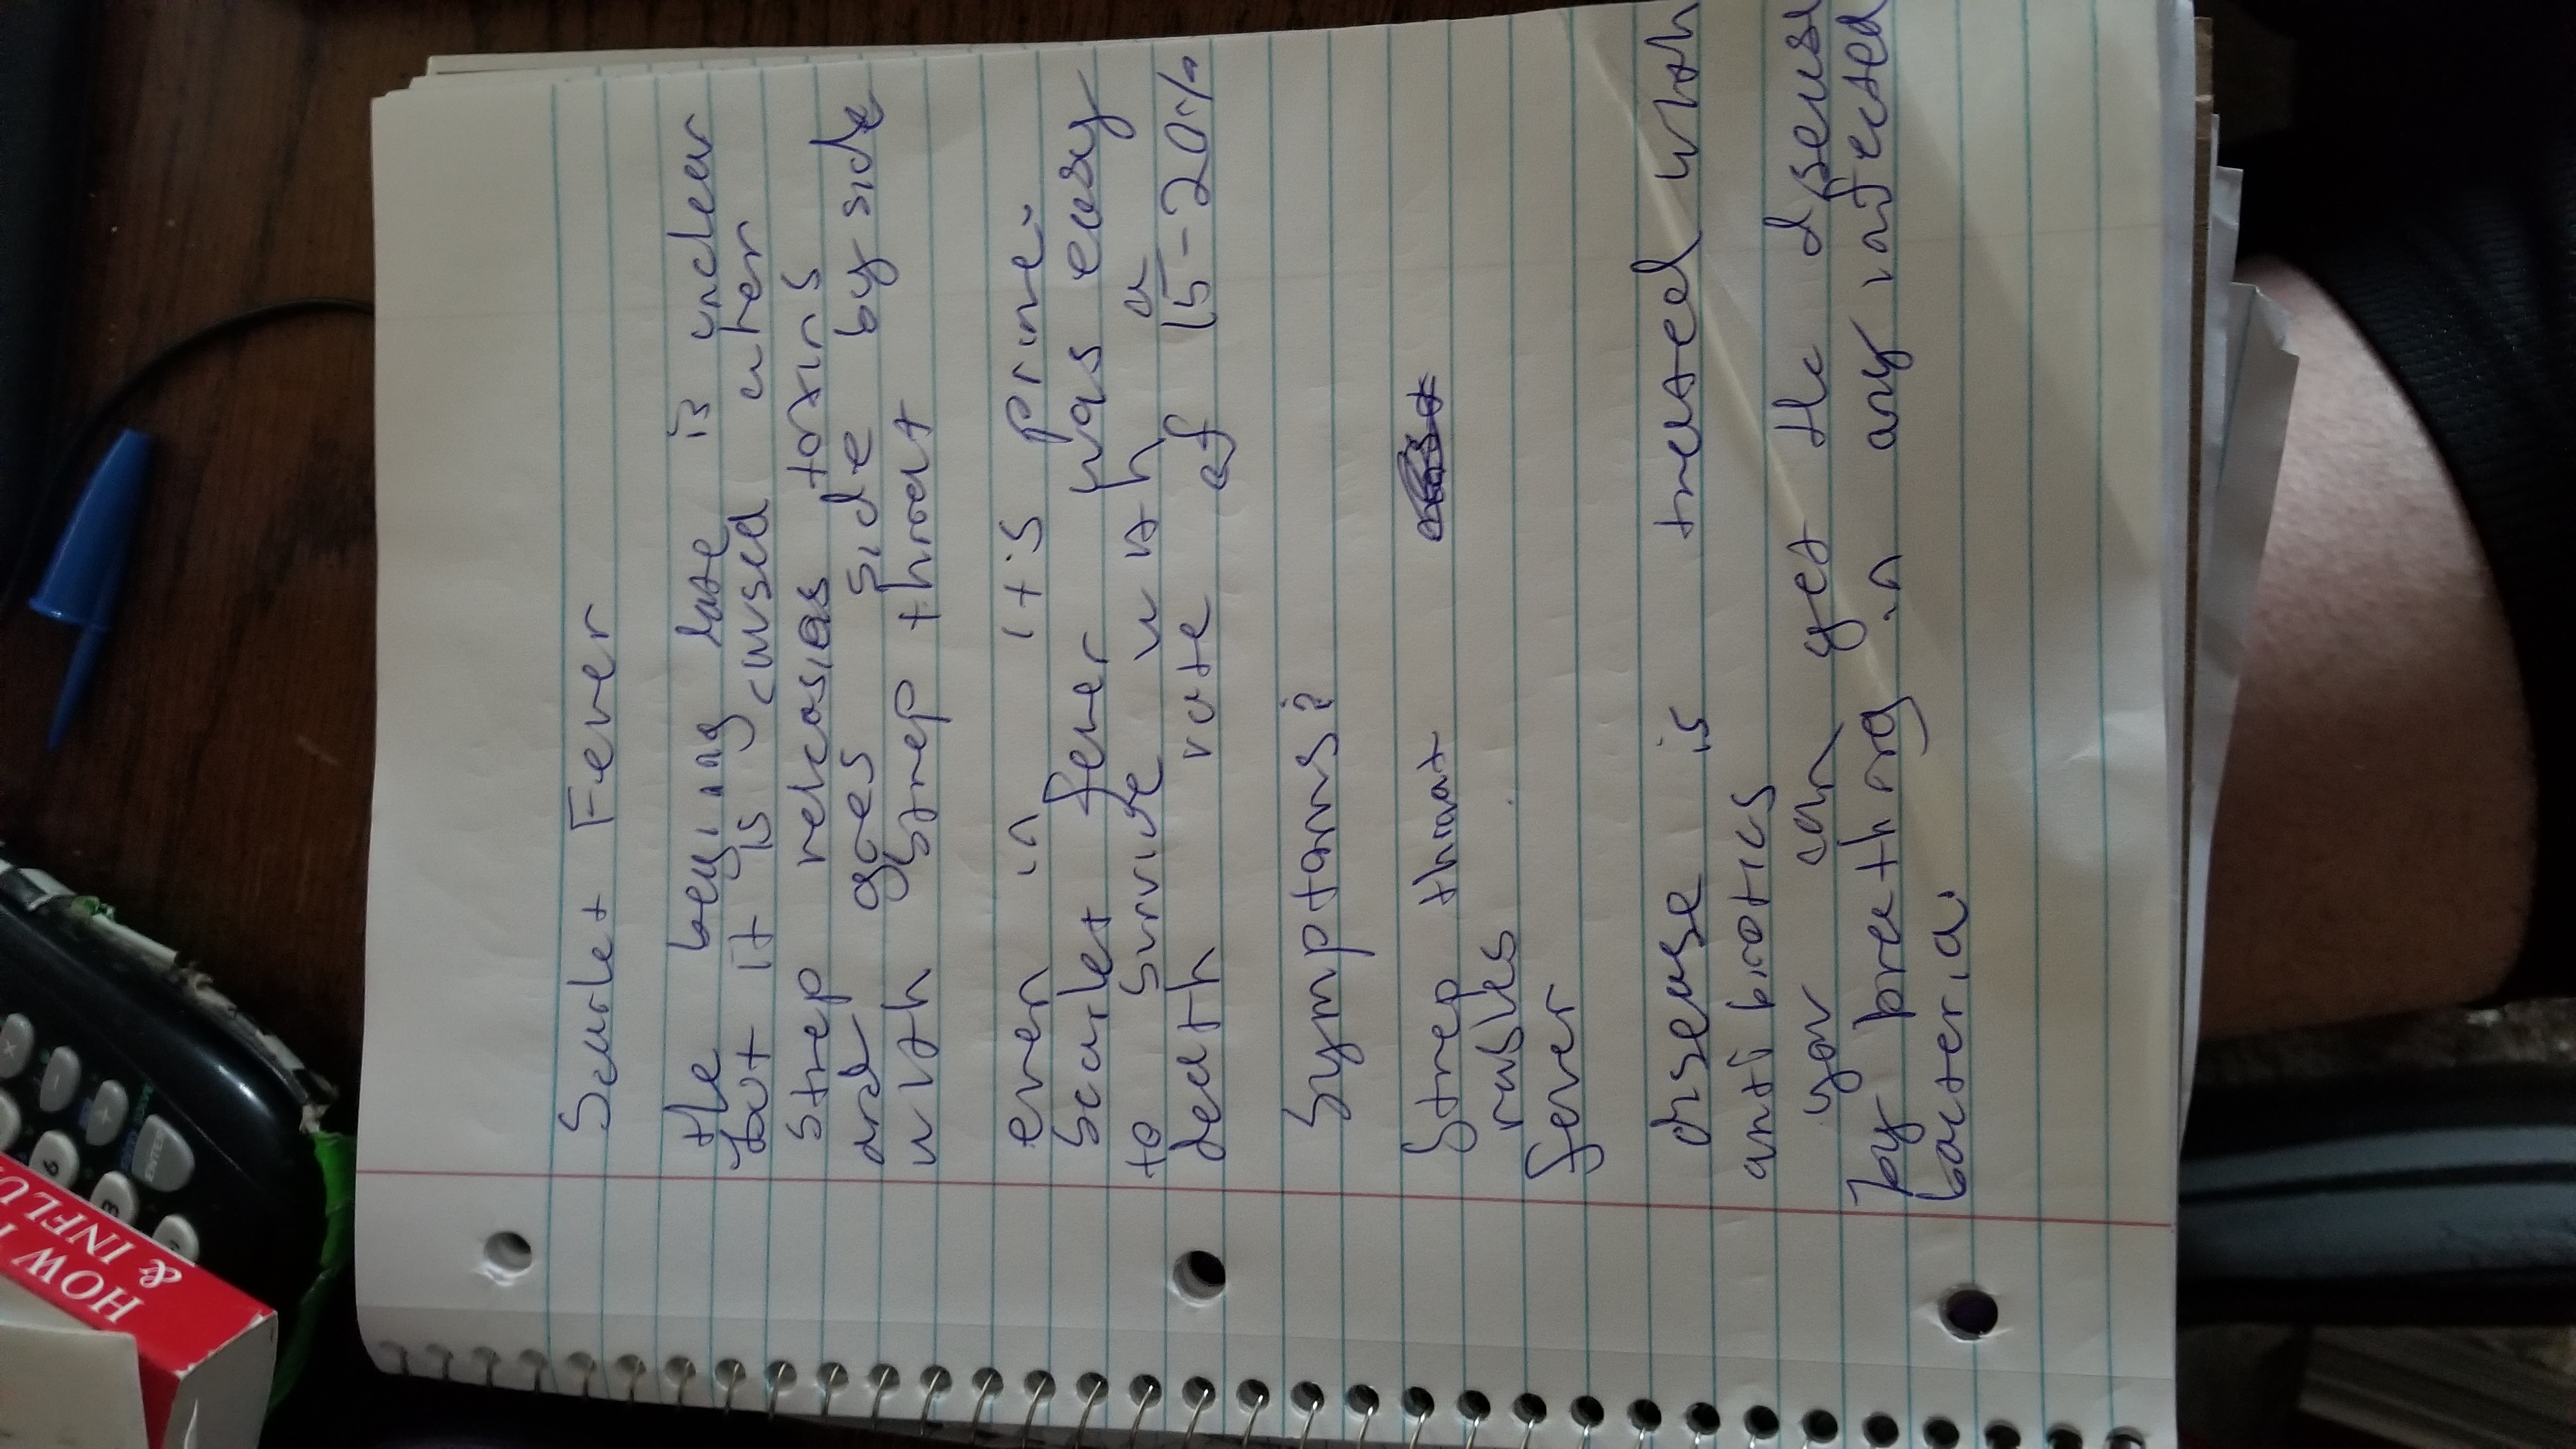 Scarlet Fever
the begining date is unclear
but it is caused when
strep releasies toxins
and goes side by side
with strep throat
even in it's prime.
Scarlet fever was easy
to survive with a
death rate of 15-20%
Symptoms?
Strep throat
rashes
fever
disease is treated with
anti biotics
you can get the disease
by breathing in any infected
bacteria.
HOW
& INFLU
ENTER